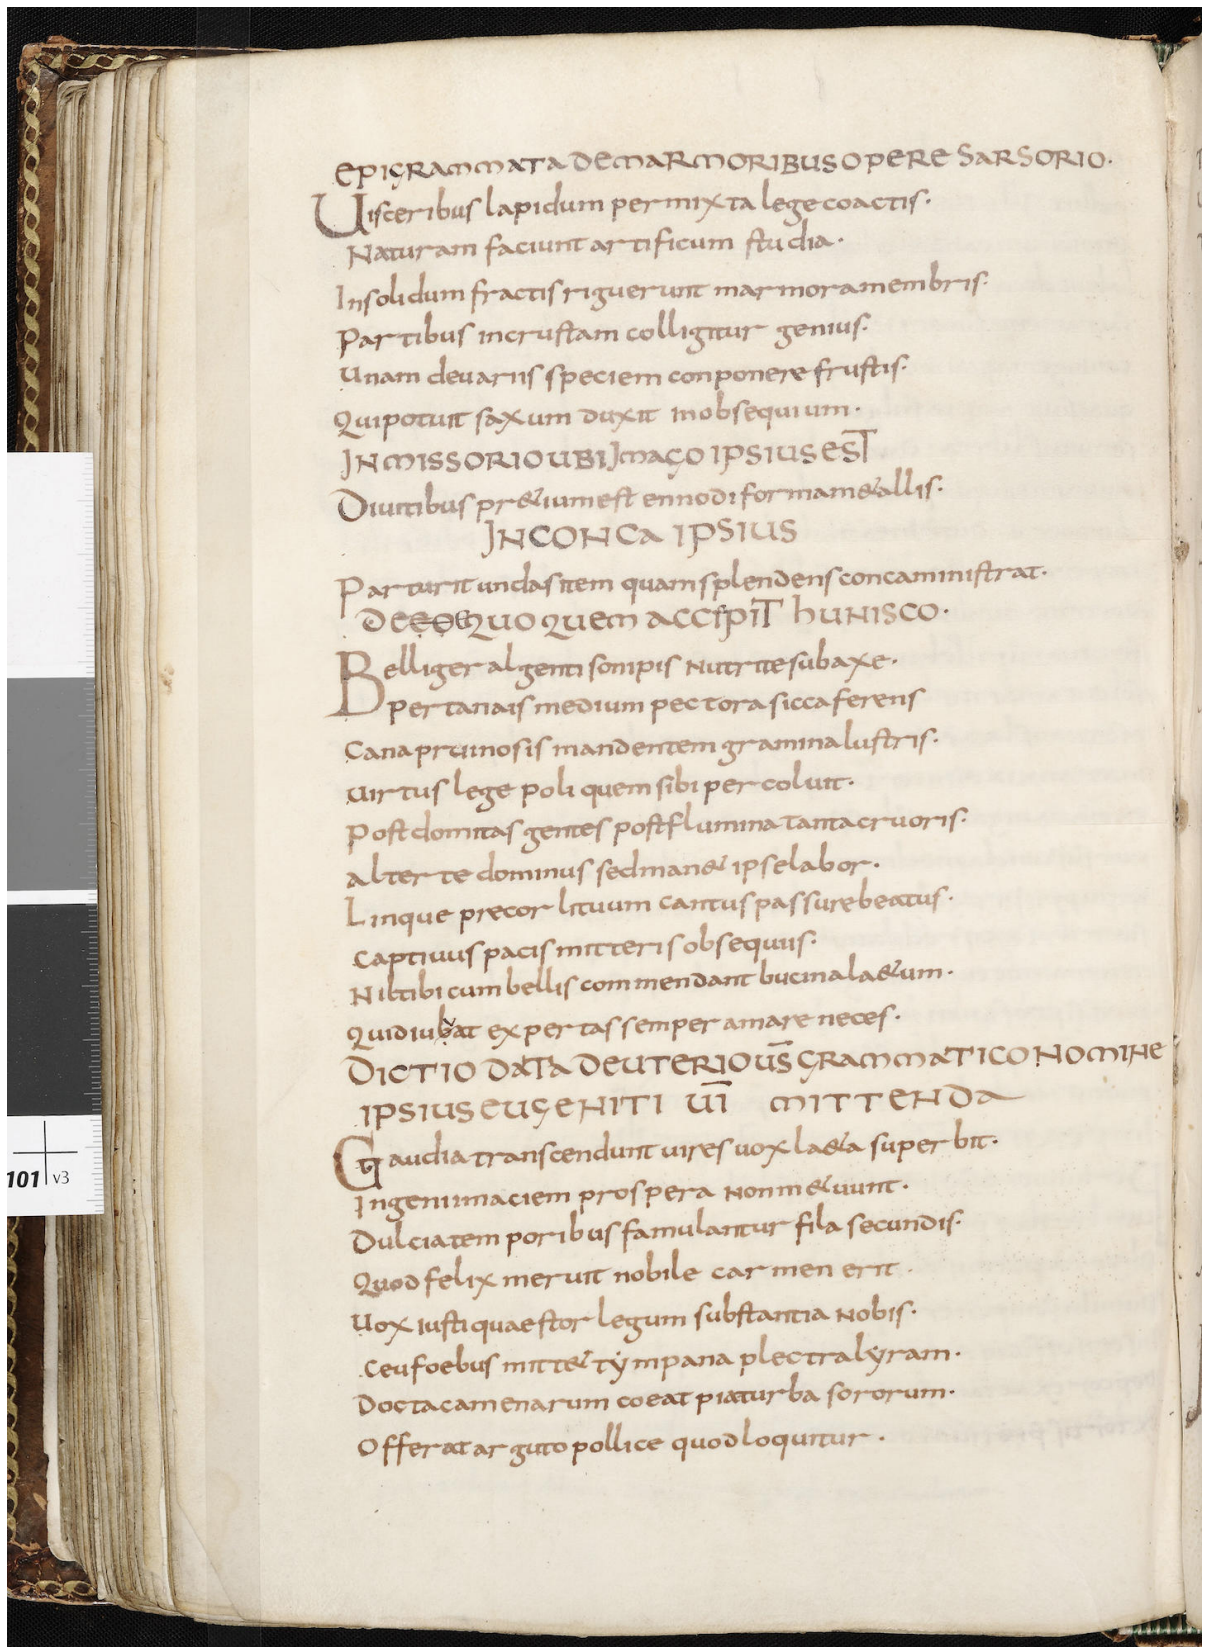 EPIGRAMMATA DE MARMORIBUS OPERE SARSORIO·
Uisceribus lapidum permixta lege coactis·
Naturam faciunt artificum studia·
Insolidum fractis riguerunt marmora membris·
Partibus incrustam colligitur genius·
Unam deuariis speciem conponere frustis·
Qui potuit saxum duxit inobsequium·
IN MISSORIO UBI IMAGO IPSIUS EST
Diuitibus pr&ium est ennodi forma m&allis·
IN CONCA IPSIUS
Parturit undas item quam splendens conca ministrat·
DE EO QUO QUEM ACCIPIT HUNISCO·
Belliger algenti sompis nutrite subaxe·
Per tanais medium pectora sicca ferens
Cana pruinosis mandentem gramina lustris·
Uirtus lege poli quem sibi percoluit·
Post domitas gentes post flumina tanta cruoris·
Alter te dominus sed man& ipse labor·
Linque precor lituum cantus passure beatus·
Captiuus pacis mitteris obsequiis·
Nil tibi cum bellis commendant bucina la&um·
Quid iubat expertas semper amare neces·
DICTIO DATA DEUTERIO U̅S̅ GRAMMATICO NOMINE
IPSIUS EUGENITI U̅I̅ MITTENDA
Gaudia transcendunt uires uox la&a superbit·
Ingenii maciem prospera non m&uunt·
Dulcia temporibus famulantur fila secundis·
Quod felix meruit nobile carmen erit·
Uox iusti quaestor legum substantia nobis·
Ceu foebus mitt& tẏmpana plectra lẏram·
Docta camenarum coeat pia turba sororum·
Offerat arguto pollice quod loquitur·